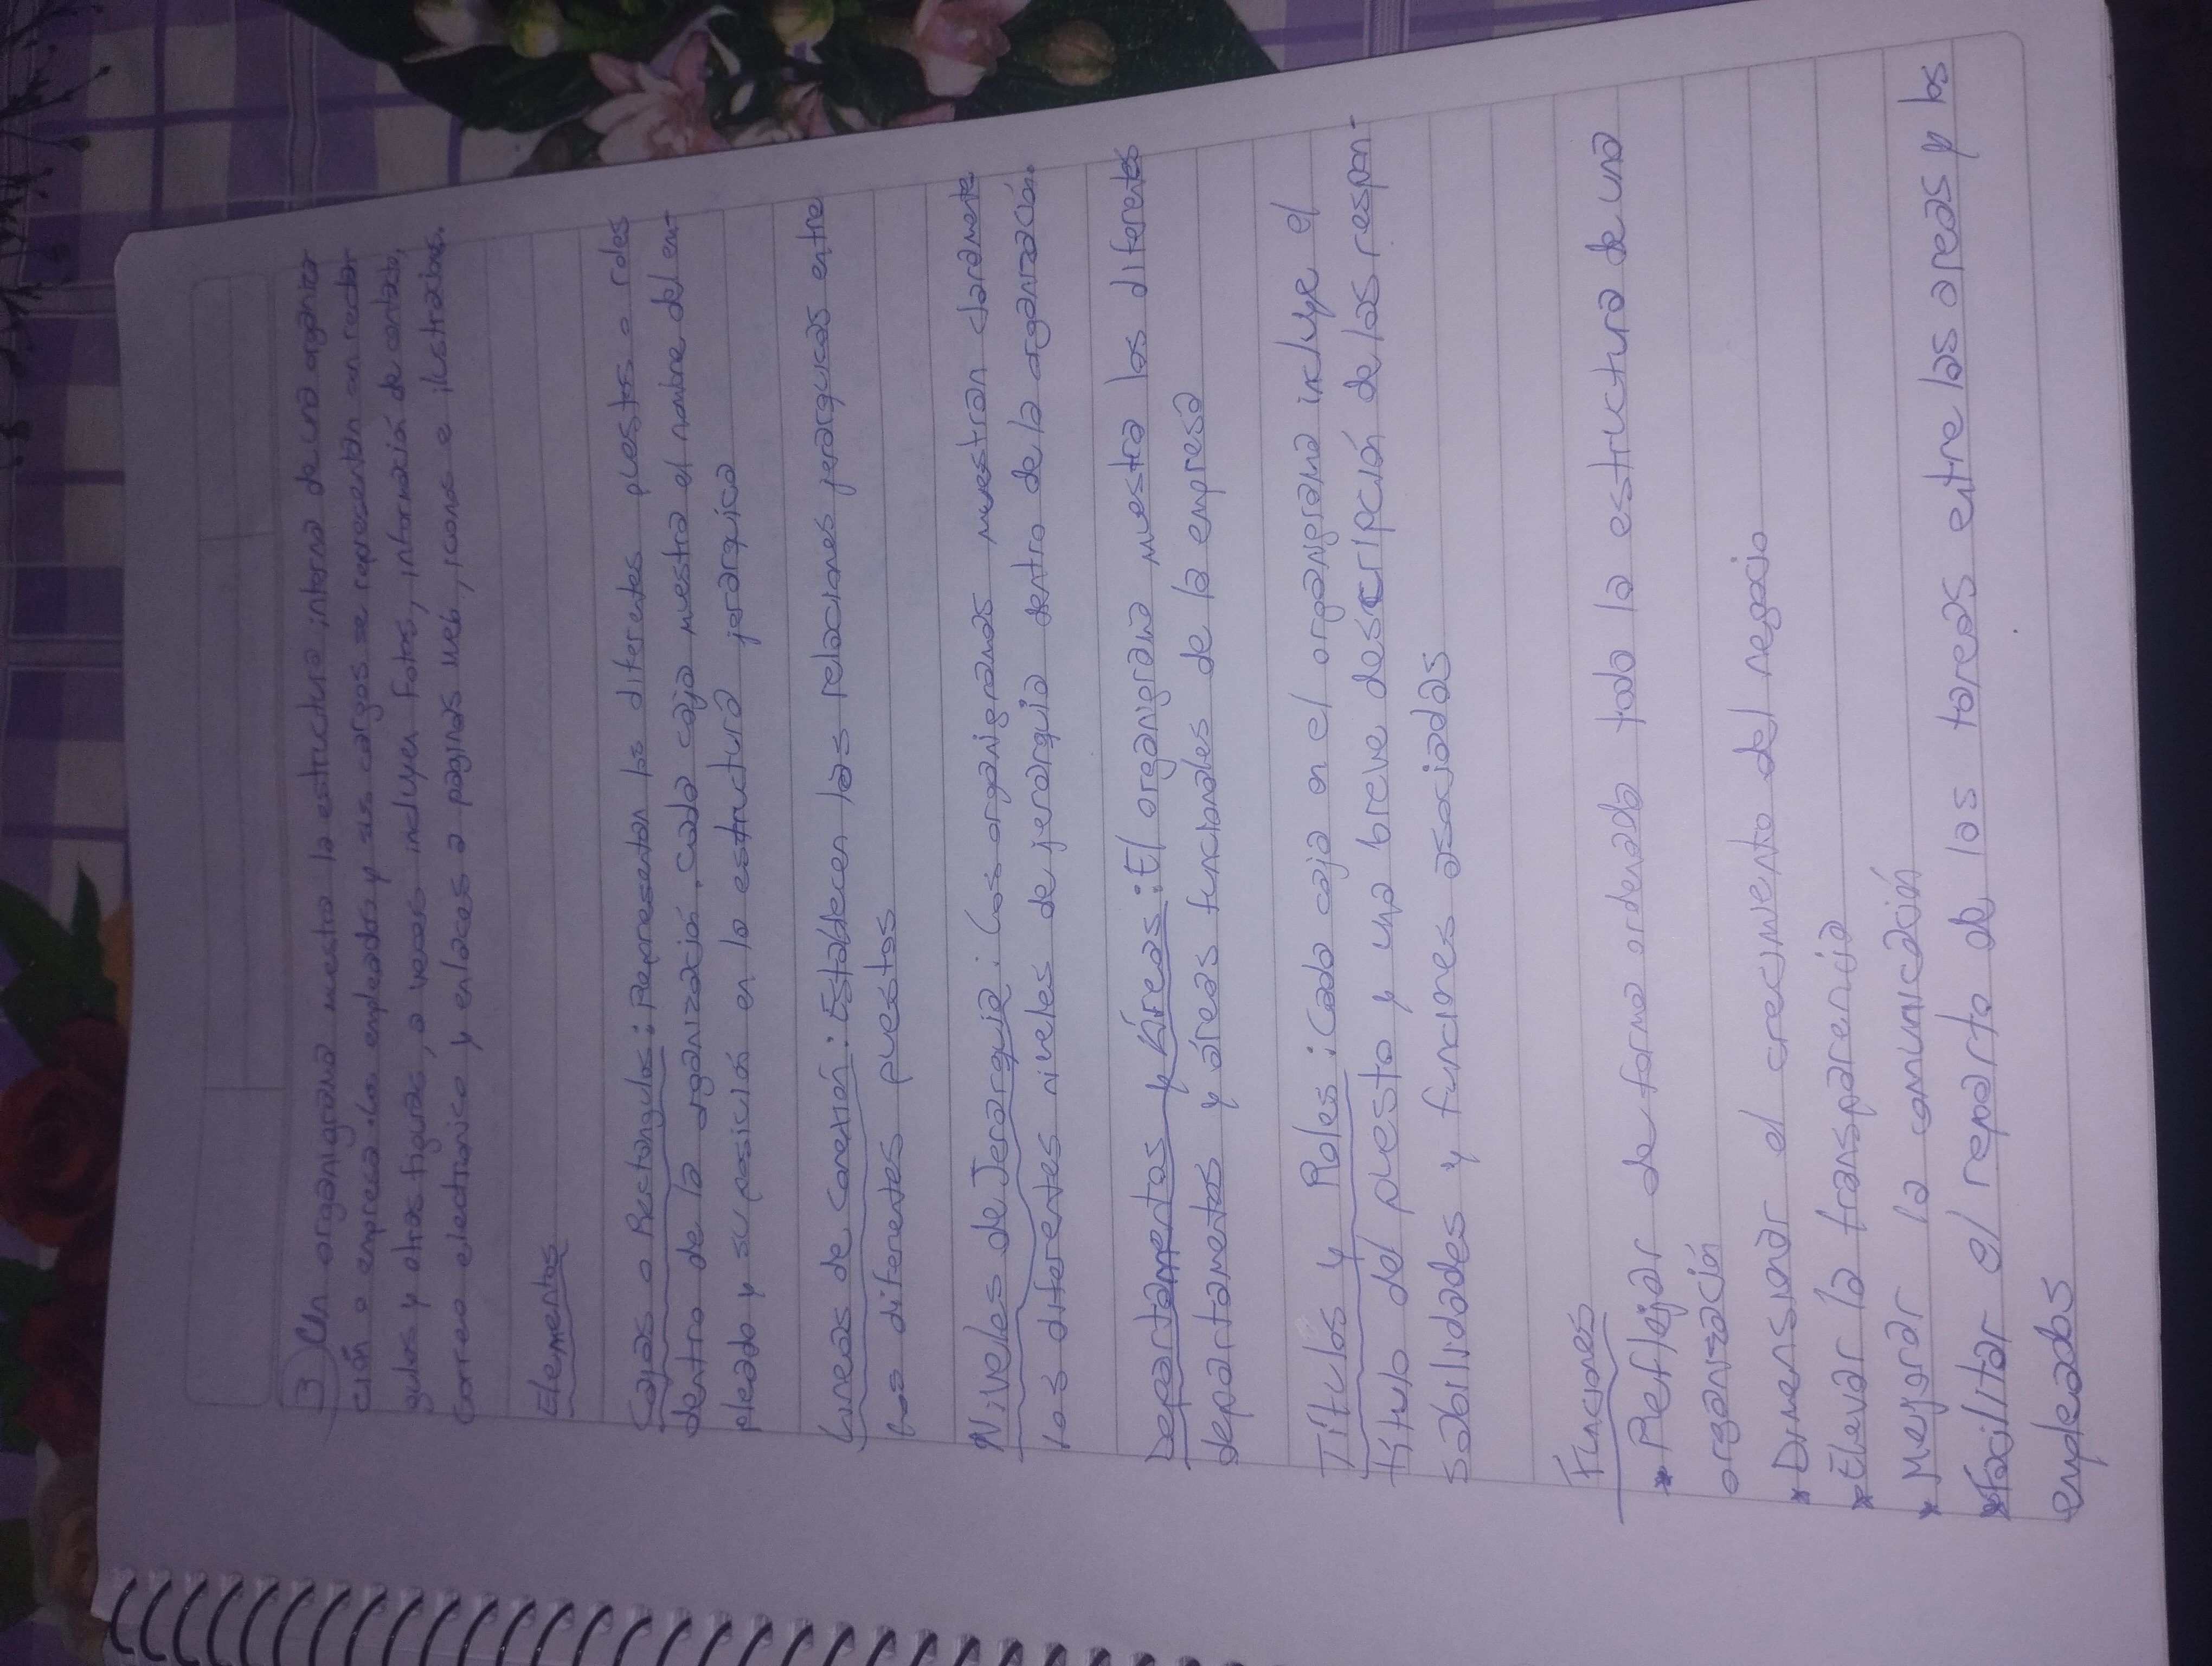 3) Un organigrama muestra la estructura interna de una organiza
ción o empresa. Los empleados y sus cargos se representan en rectan
gulos y otras figuras, a veces incluyen Fotos, información de contacto,
correo electronico y enlaces a paginas web, iconos e ilustraciones.
Elementos
Cajas o Rectangulos: Representan los diferentes puestos o roles
dentro de la organización. Cada caja muestra el nombre del em-
pleado y su posición en la estructura jerarquica
Lineas de conexión: Establecen las relaciones jerarquicas entre
los diferentes puestos
Niveles de Jerarquia: Los organigramas muestran claramente
los diferentes niveles de jerarquia dentro de la organización.
Departamentos y Áreas: El organigrama muestra los diferentes
departamentos y áreas funcionales de la empresa
Títulos y Roles: Cada caja en el organigrama incluye el
título del puesto y una breve descripción de las respon-
sabilidades y funciones asociadas
Funciones
* Reflejar de forma ordenada toda la estructura de una
organización
* Dimensionar el crecimiento del negocio
* Elevar la transparencia
* Mejorar la comunicación
* Facilitar el reparto de las tareas entre las areas y los
empleados